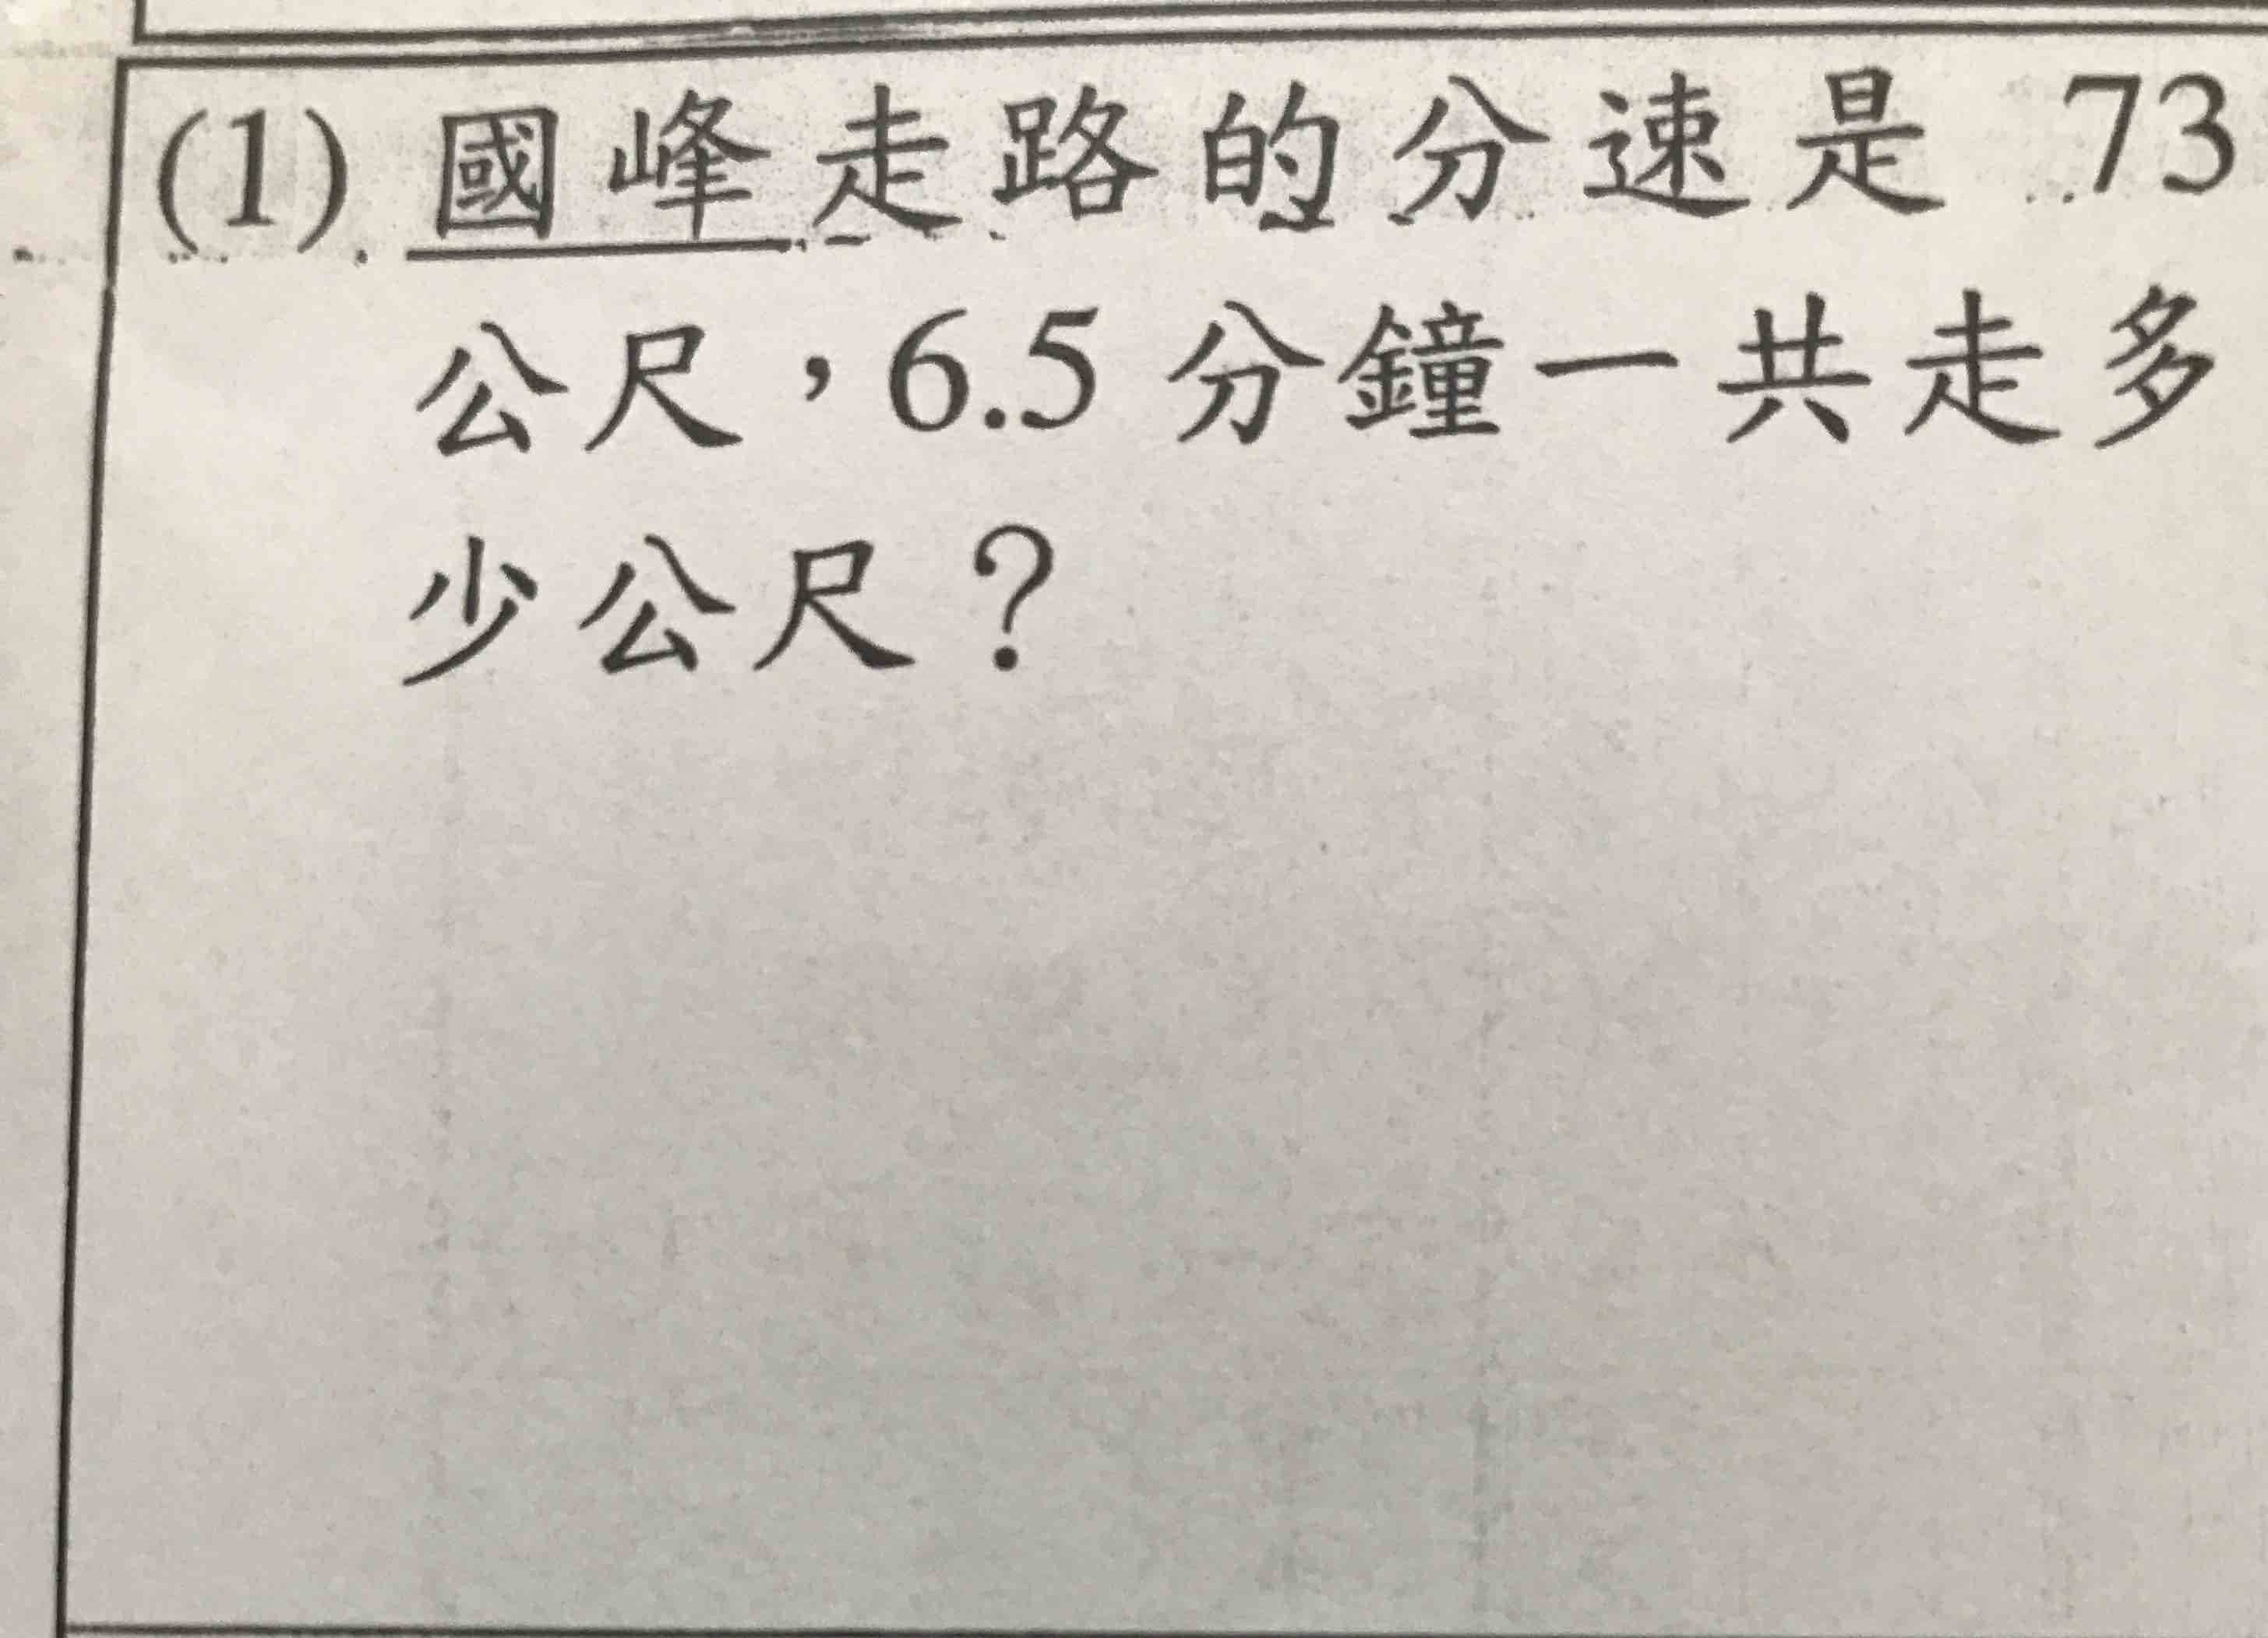 (1) 國峰走路的分速是 73
公尺，6.5 分鐘一共走多
少公尺？